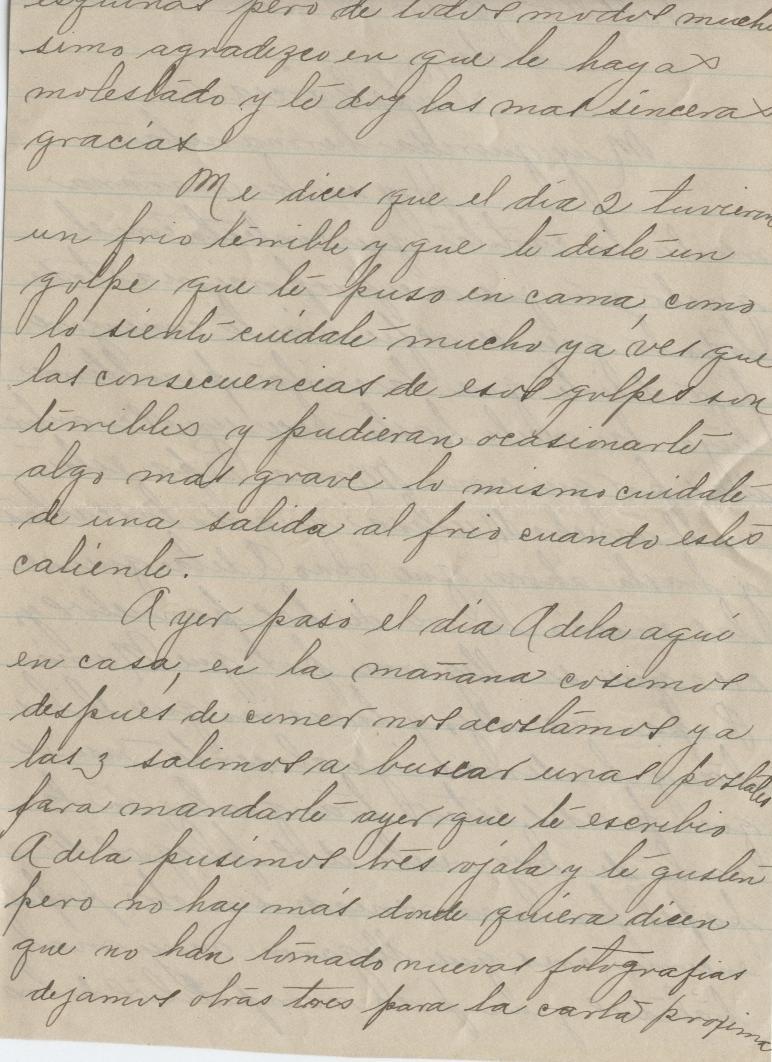 esquinas pero de todos modos muchi
simo agradezco en que te hayas
molestado y te doy las mas sinceras
gracias
Me dices que el día 2 tuvieron
un frio terrible y que te diste un
golpe que te puso en cama, como
lo siento cuidate mucho ya ves que
las consecuencias de esos golpes son
terribles y pudieran ocasionarte
algo mas grave lo mismo cuidate
de una salida al frio cuando estés
caliente.
Ayer paso el día Adela aquí
en casa, en la mañana cosimos
despues de comer nos acostamos y a
las 3 salimos a buscar unas postales
para mandarte ayer que te escribio
Adela pusimos tres ojala y te gusten
pero no hay más donde quiera dicen
que no han tomado nuevas fotografias
dejamos otras tres para la carta proxima